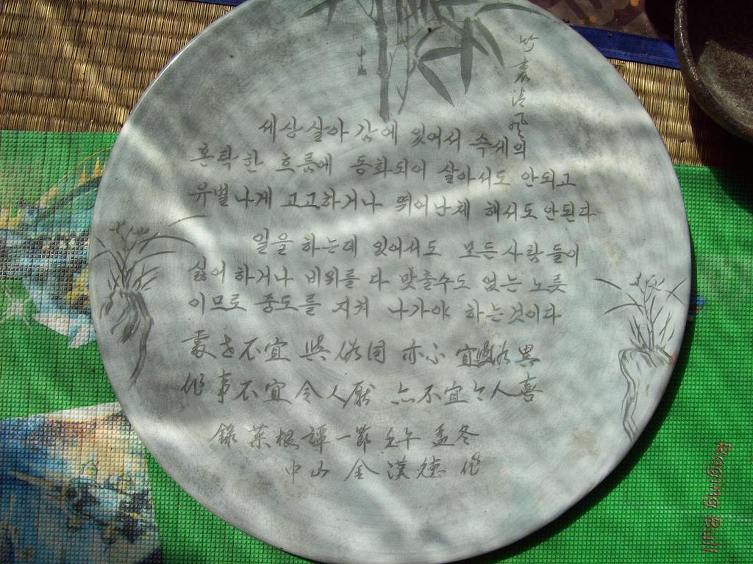 竹裏清風
세상살아 감에 있어서 속세의
혼탁한 흐름에 동화되어 살아서도 안되고
유별나게 고고하거나 뛰어난체 해서도 안된다
일을 하는데 있어서도 모든사람들이
싫어하거나 비위를 다 맞출수도 없는 노릇
이므로 중도를 지켜 나가야 하는것이다
處世不宜 與俗同 亦不宜與俗異
作事不宜令人厭 亦不宜令人喜
錄菜根譚一節 壬午 孟冬
中山 金漢德 作
Raging Bull